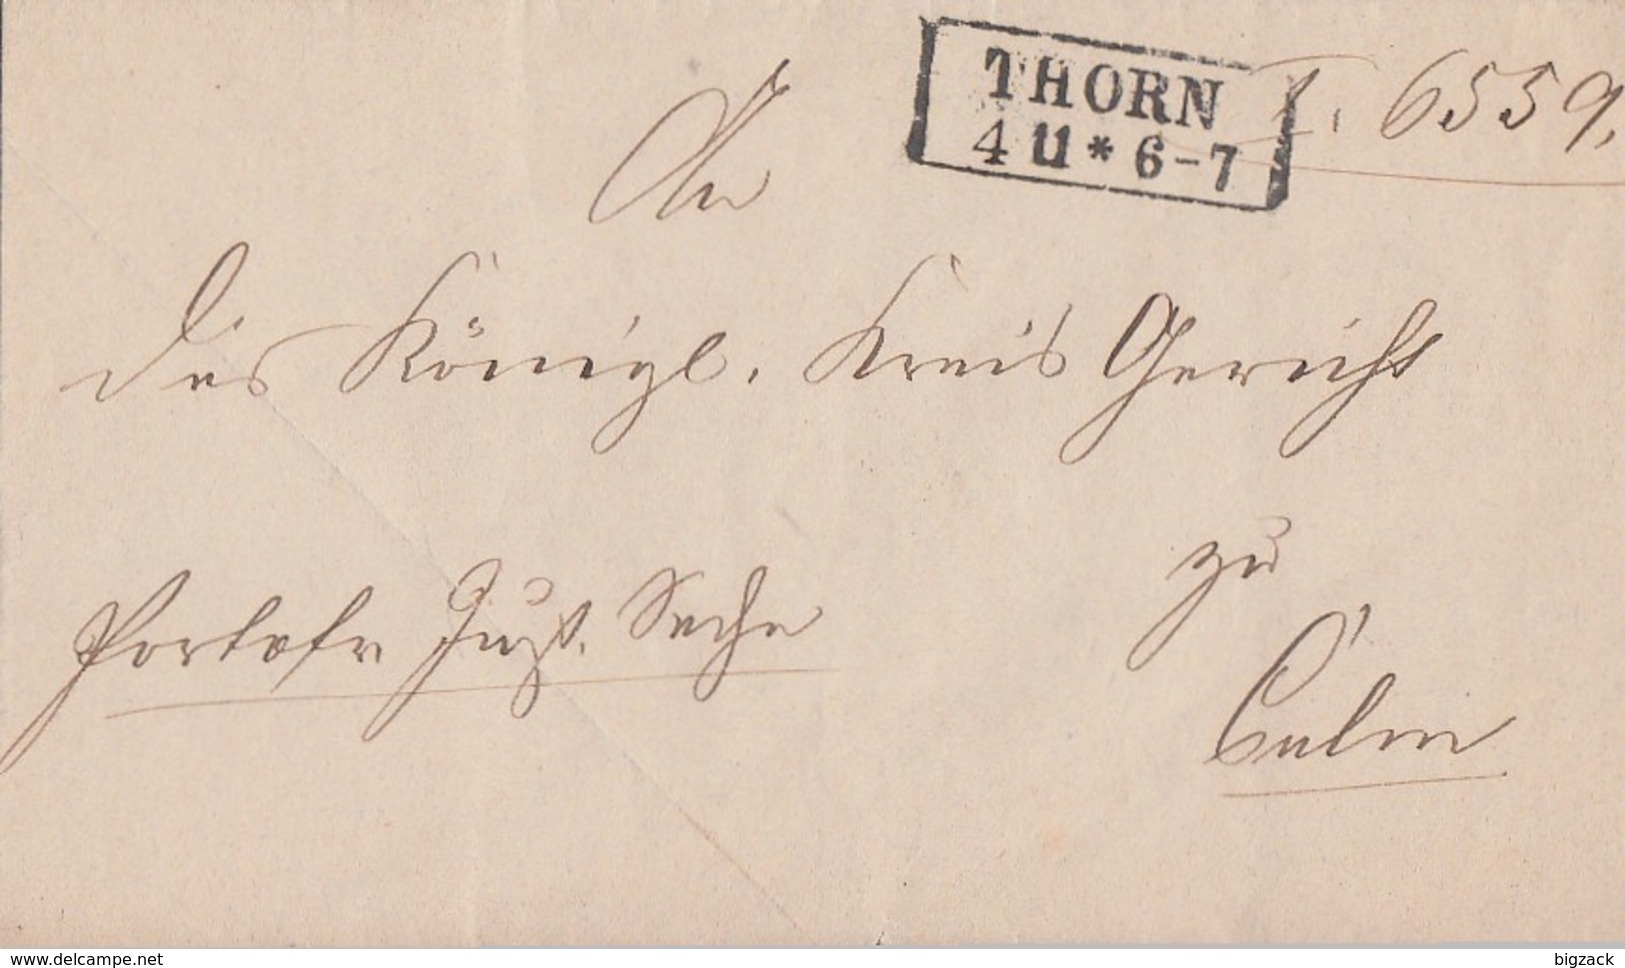 THORN
4 11 * 6-7
I. 6559.
An
das Königl. Kreis Gericht
zu
Culm
Portofr. Just. Sache
www.delcampe.net
bigzack